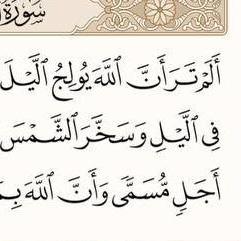 سُورَةُ
أَلَمْ تَرَ أَنَّ ٱللَّهَ يُولِجُ ٱلَّيْلَ
فِى ٱلَّيْلِ وَسَخَّرَ ٱلشَّمْسَ
أَجَلٍ مُّسَمًّى وَأَنَّ ٱللَّهَ بِمَا